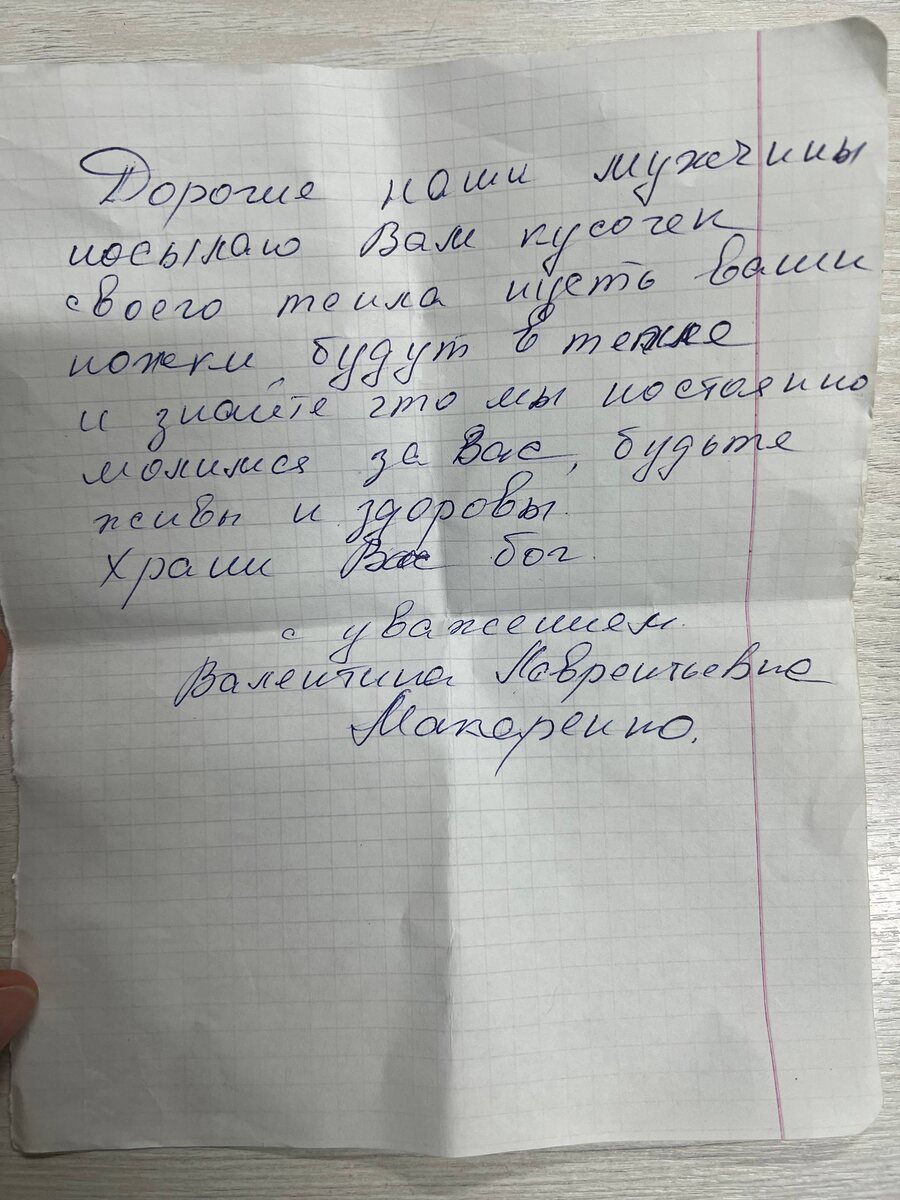 Дорогие наши мужчины
посылаю Вам кусочек
своего тепла пусть ваши
ножки, будут в тепле
и знайте что мы постоянно
молимся за Вас, будьте
живы и здоровы.
Храни Вас бог.
с уважением.
Валентина Лаврентьевна
Макаренко.